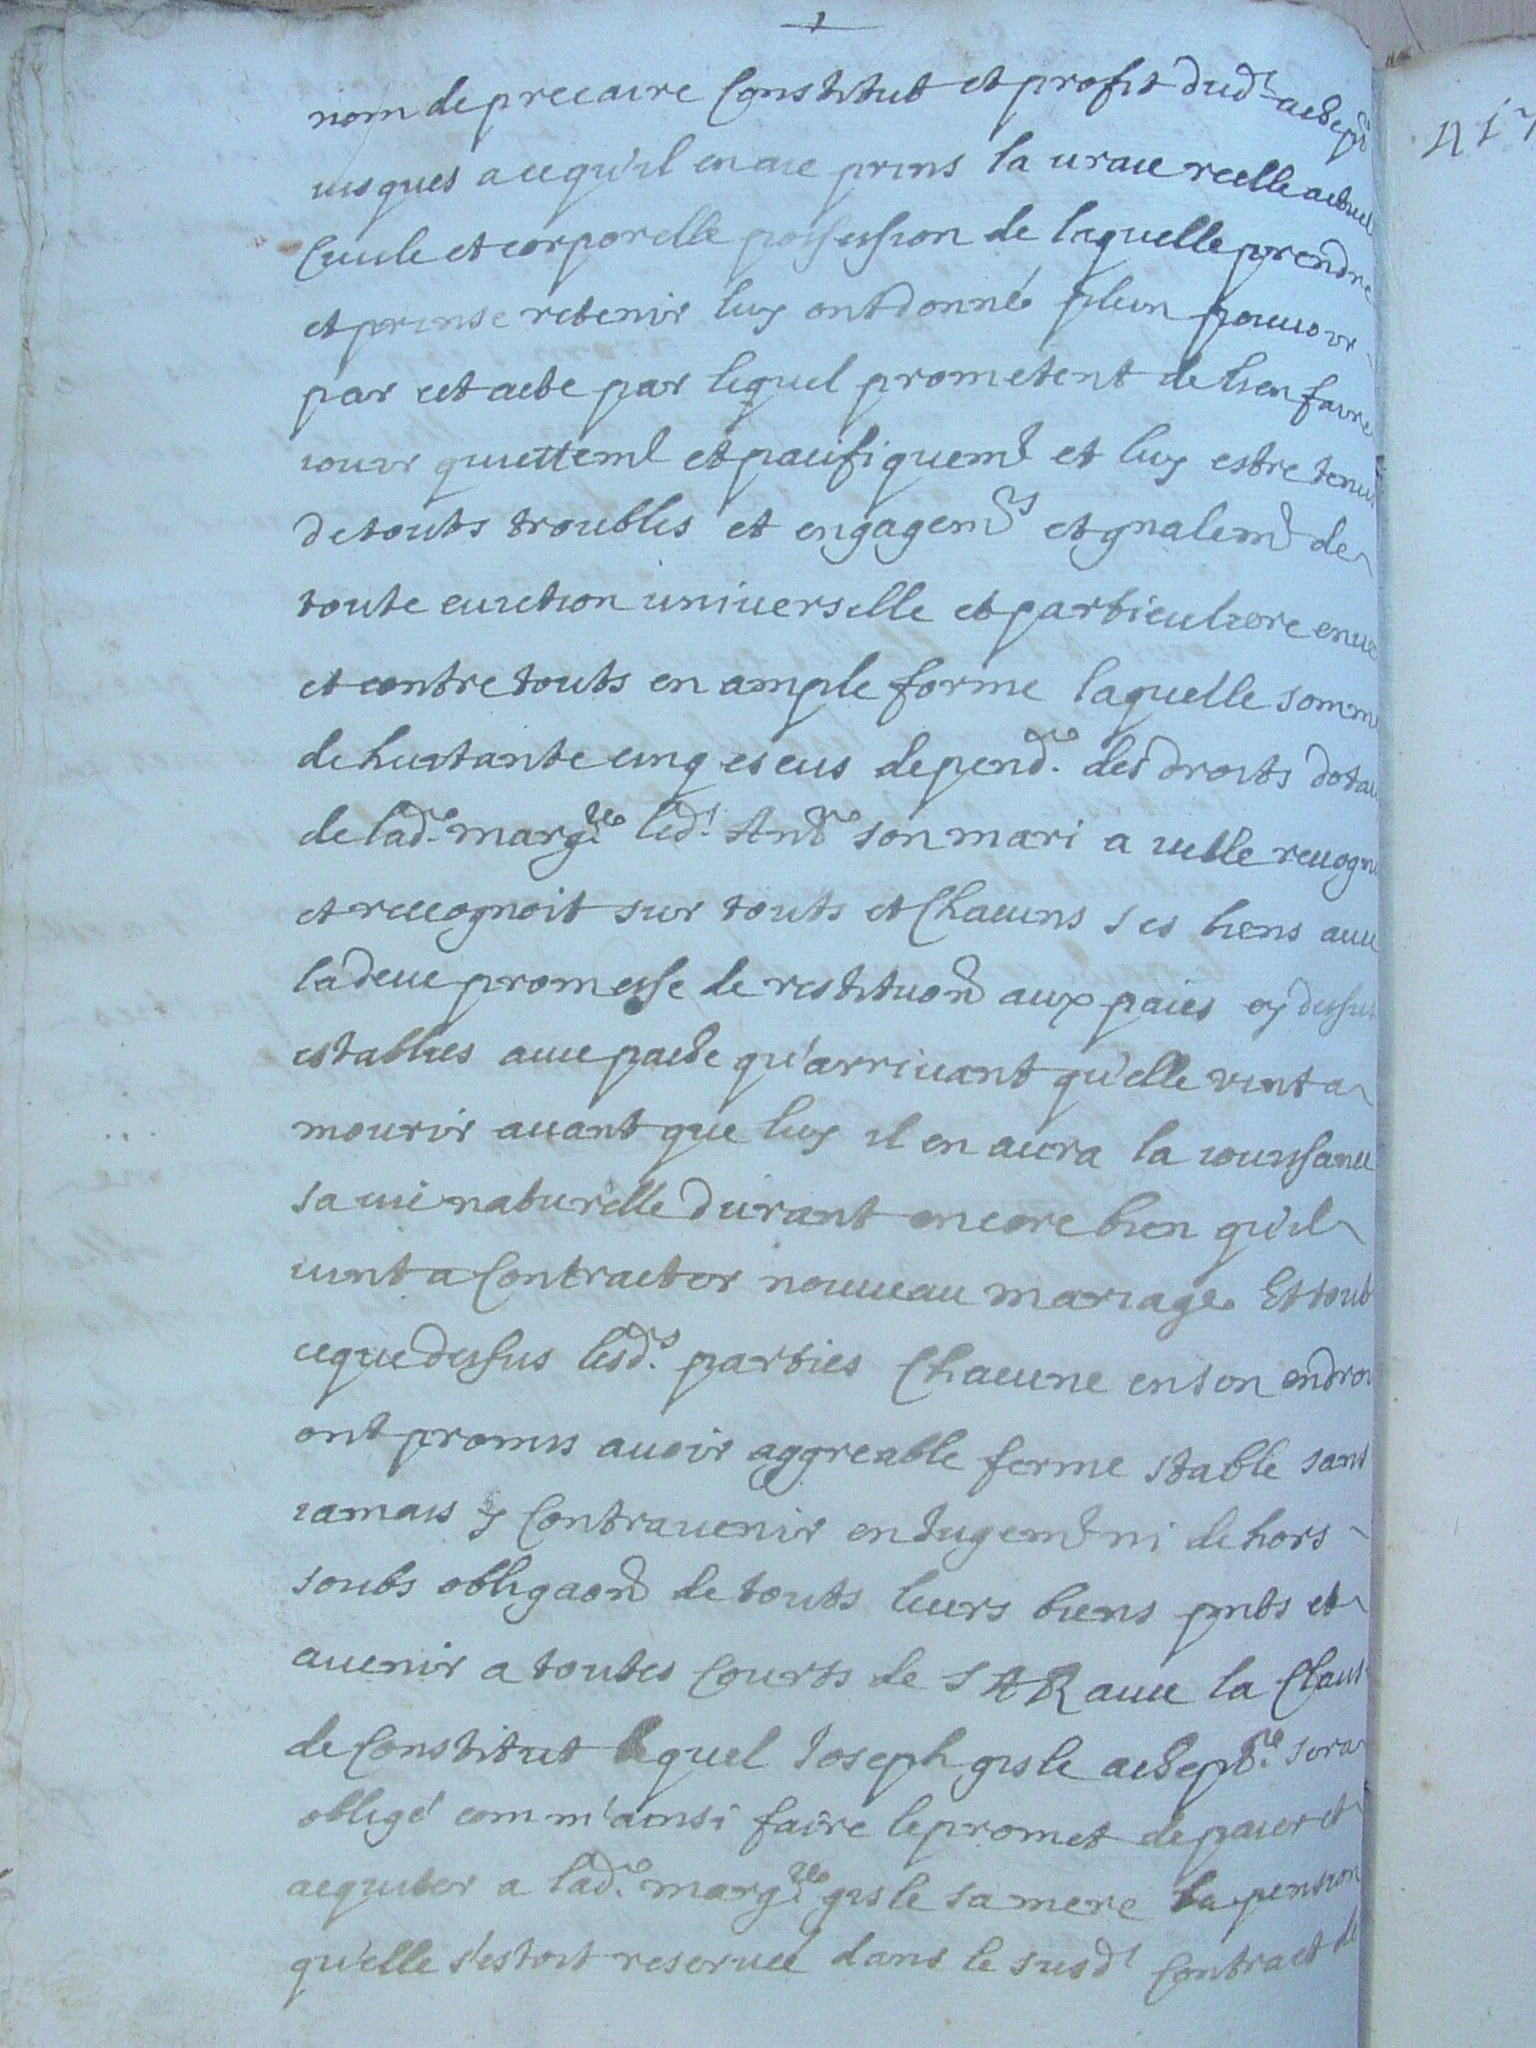 nom de precaire Constitut et profit dud.t achept.r
iusques a ce qu'il en aie prins la uraie reelle actuel
Ciuile et corporelle possession de laquelle prendre
et prinse retenir luy ont donné plein pouuoir
par cet acte par lequel prometent de l'en faire
iouir quiettem.t et pacifiquem.t et luy estre tenu
de touts troubles et engagem.ts et gnalem.t de
toute euiction uniuerselle et particuliere enue
et contre touts en ample forme laquelle somm
de huitante cinq escus depend.te des droits dotau
de lad.e marg.te led.t Ant.e son mari a icelle recogn
et recognoit sur touts et Chacuns ses biens auec
la deue promesse de restituon aux paies cy dessus
establies auec pacte qu'arriuant qu'elle vint a
mourir auant que luy il en aura la iouissance
sa uie naturelle durant encore bien qu'il
uint a Contracter nouueau mariage. Et tout
ce que dessus lesd.s parties Chacune en son endroi
ont promis auoir aggreable ferme stable sans
iamais y Contrauenir en Jugem.t ni dehors
soubs obligaon de touts leurs biens pnts et
auenir a toutes Courts de S A R auec la Claus
de Constitut lequel Joseph gisle achept.r sera
obligé comm'ainsi faire le promet de paier et
acquiter a lad.e marg.te gisle sa mere la pension
qu'elle s'estoit reseruée dans le susd.t Contract de
217